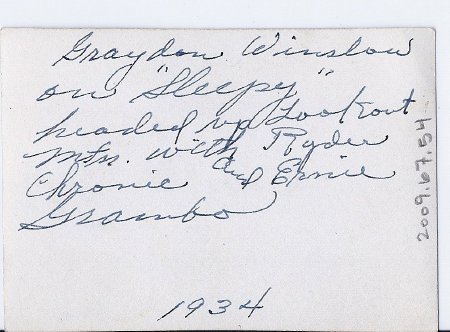 Graydon Winslow
on "Sleepy"
headed up Lookout
Mtn. with Ryder
Chronic and Ernie
Grambo
1934
2009.67.54